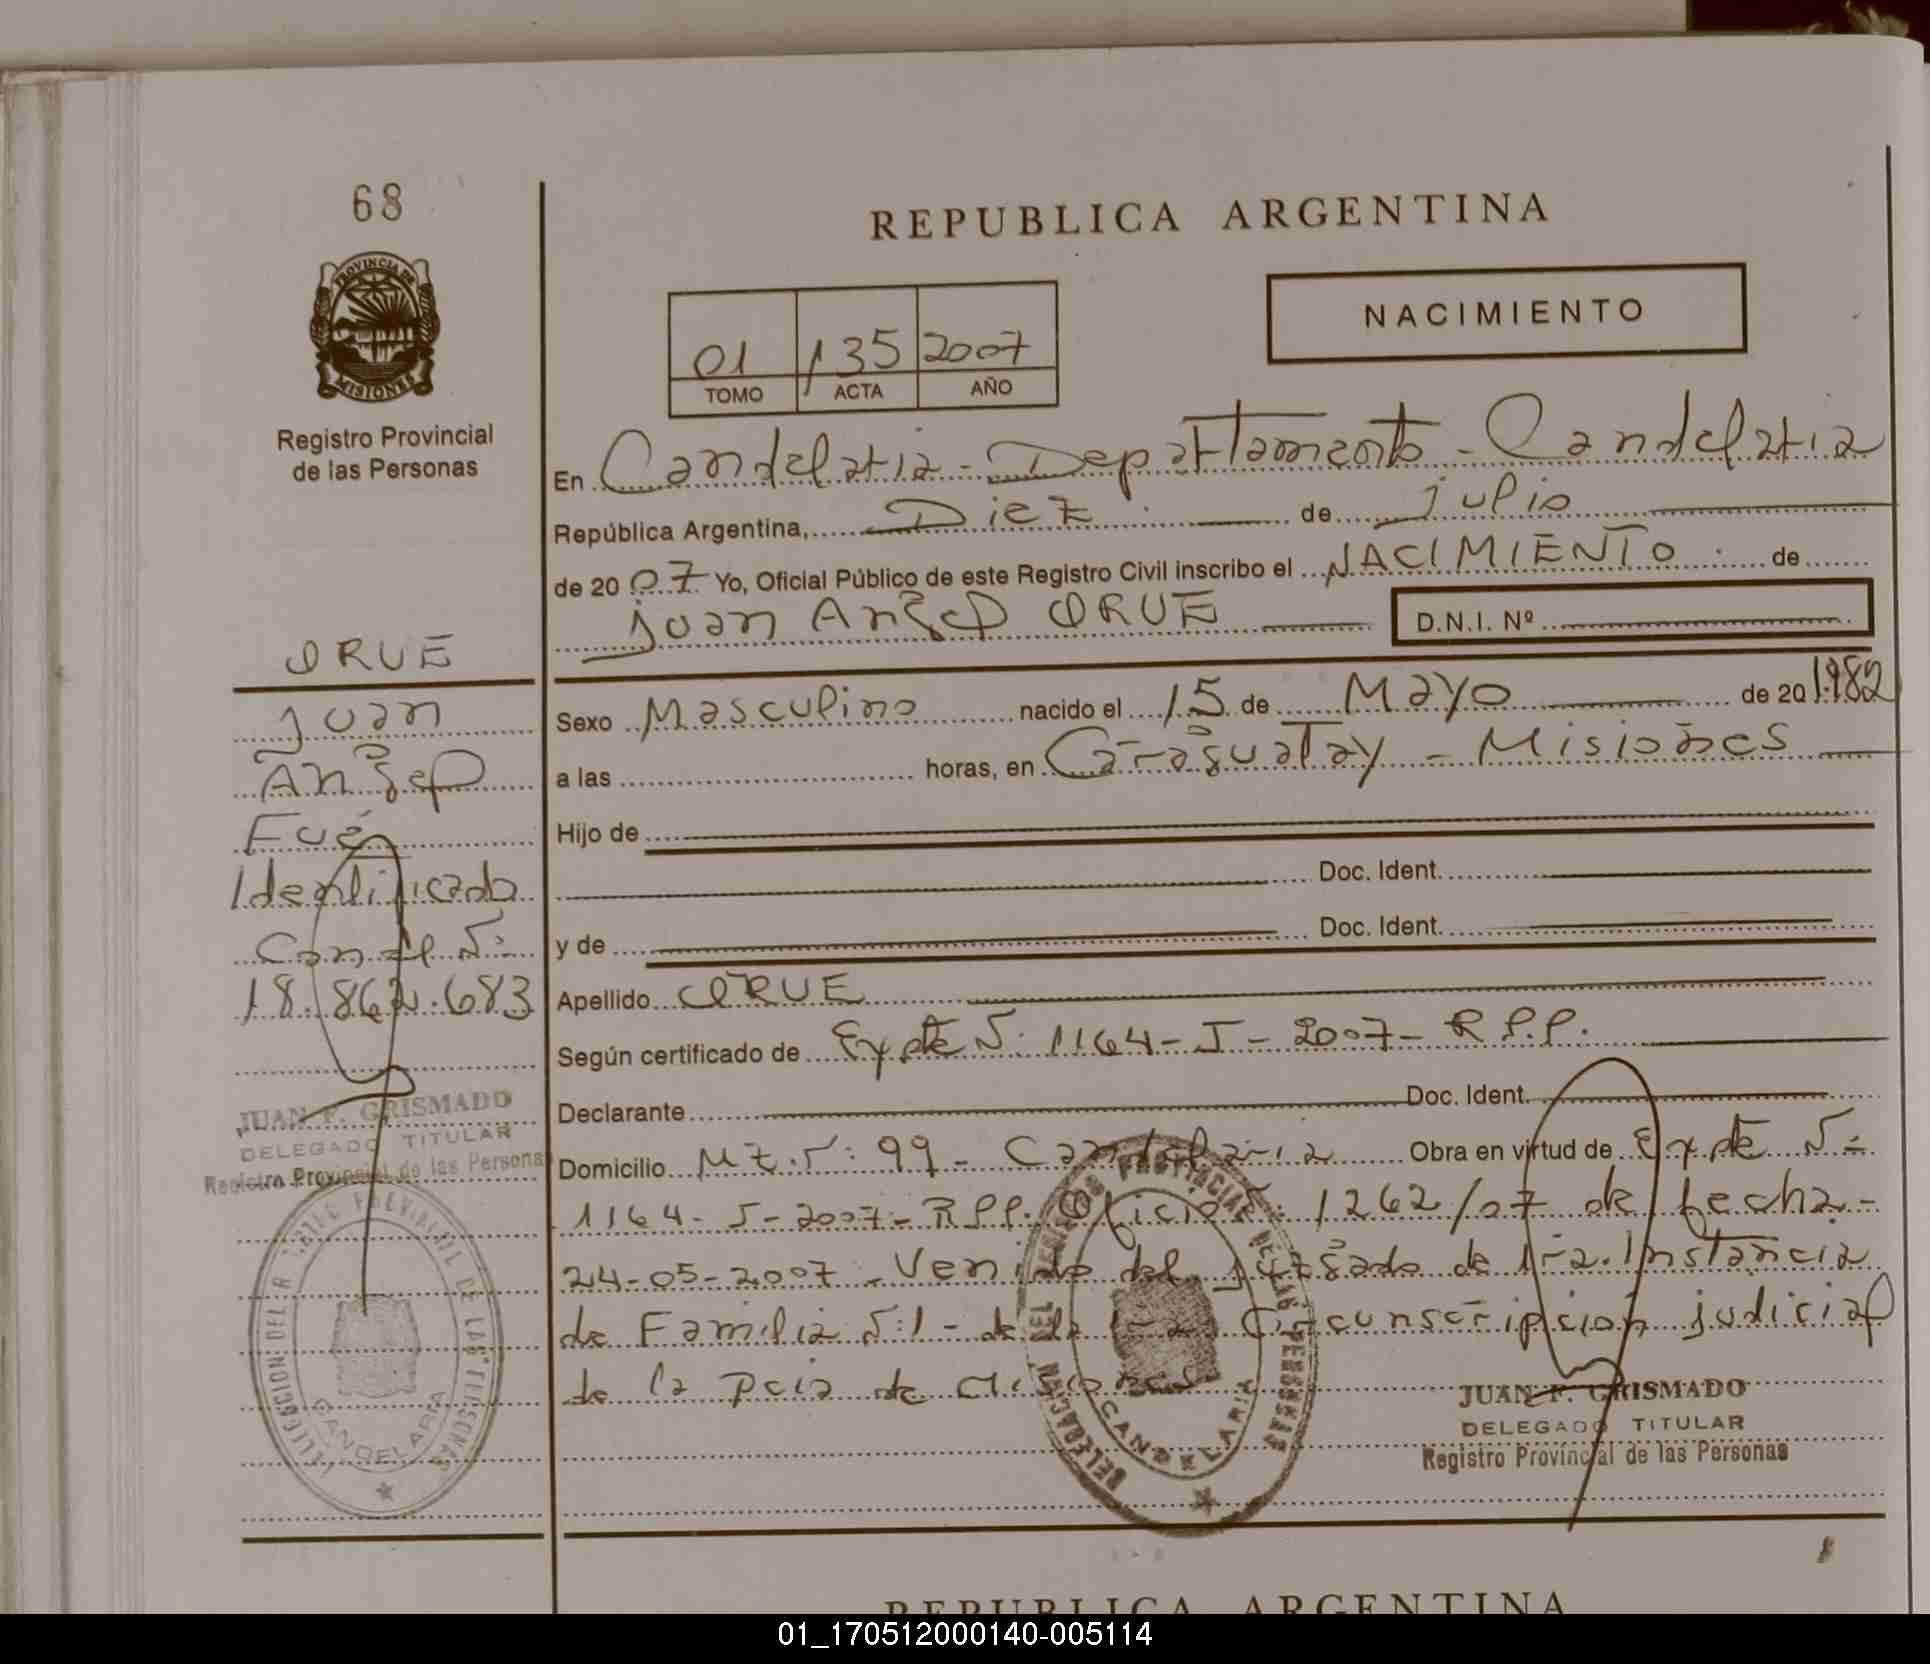 68
PROVINCIA DE
MISIONES
Registro Provincial
de las Personas
REPUBLICA ARGENTINA
NACIMIENTO
01 135 2007
TOMO ACTA AÑO
En Candelaria - Departamento - Candelaria
República Argentina, Diez de julio
de 2007 Yo, Oficial Público de este Registro Civil inscribo el NACIMIENTO de
Juan Angel ORUE D.N.I. Nº
Sexo Masculino nacido el 15 de Mayo de 20 1982
a las horas, en Caraguatay - Misiones
Hijo de
Doc. Ident.
y de Doc. Ident.
Apellido ORUE
Según certificado de Expte Nº 1164-J-2007- R.P.P.
Declarante Doc. Ident.
Domicilio Mz. Nº: 99 - Candelaria Obra en virtud de Expte Nº
1164-J-2007- R.P.P. Oficio Nº 1262/07 de fecha -
24-05-2007 - Venido del juzgado de 1ra. Instancia
de Familia Nº 1 - de la 1ra Circunscripción judicial
de la Pcia de Misiones
JUAN F. GRISMADO
DELEGADO TITULAR
Registro Provincial de las Personas
CANDELARIA
ORUE
Juan
Angel
Fué
Identificado
Con el Nº
18.862.683
JUAN F. GRISMADO
DELEGADO TITULAR
Registro Provincial de las Persona
CANDELARIA
REPUBLICA ARGENTINA
01_170512000140-005114